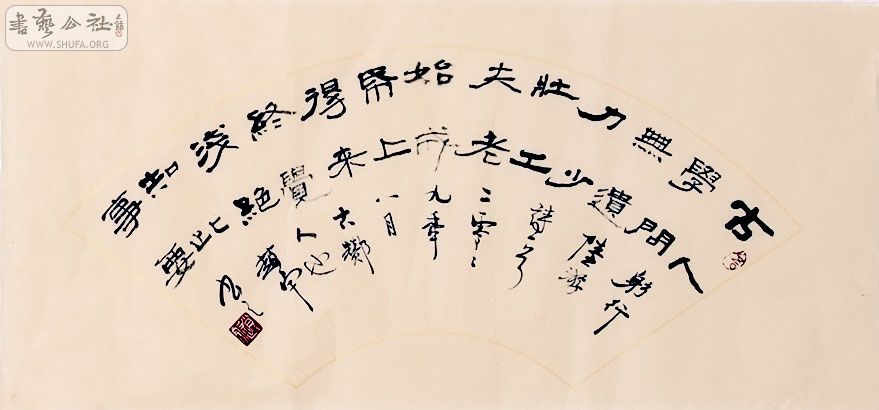 書藝公社
WWW.SHUFA.ORG
古人
學問
無遺
力少
壯工
夫老
始成
帋上
得来
終覺
淺絕
知此
事要
躬行
陸游
詩一首
二零零
九年
八月
古鄴
人也